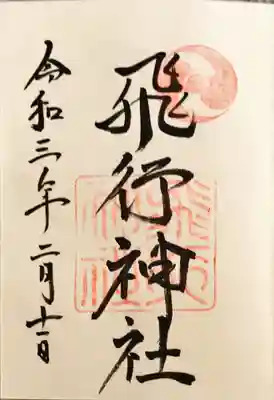 飛行神社
令和三年二月十一日